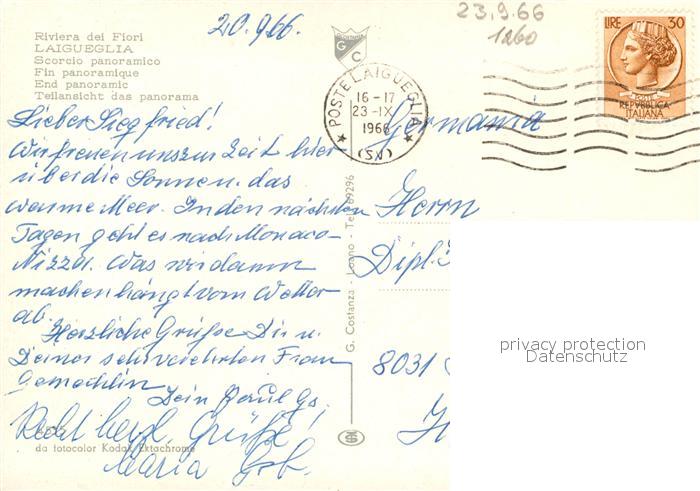 20.9.66.
23.9.66
1260
Riviera dei Fiori
LAIGUEGLIA
Scorcio panoramico
Fin panoramique
End panoramic
Teilansicht das panorama
G C
POSTE LAIGUEGLIA
16-17
23-IX
1966
(SV)
LIRE 30
POSTE
REPVBBLICA
ITALIANA
Lieber Siegfried!
Wir freuen uns zur Zeit hier
über die Sonne u. das
warme Meer. In den nächsten
Tagen geht es nach Monaco-
Nizza. Was wir dann
machen hängt vom Wetter
ab.
Herzliche Grüße Dir u.
Deiner sehr verehrten Frau
Gemahlin
Dein Paul Gs.
Recht herzl. Grüße!
Maria Grb.
da fotocolor Kodak Ektachrome
G. Costanza - Loano - Tel. 69296
Germania
Herrn
Dipl.
8031
privacy protection
Datenschutz